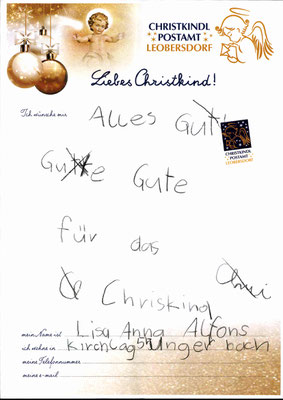 CHRISTKINDL
POSTAMT
LEOBERSDORF
Liebes Christkind!
Ich wünsche mir
Alles Gut
CHRISTKINDL
POSTAMT
LEOBERSDORF
Gute
für das
Chriskind
mein Name ist Lisa Anna Alfons
ich wohne in Kirchlag 57 Unger bach
meine Telefonnummer
meine e-mail